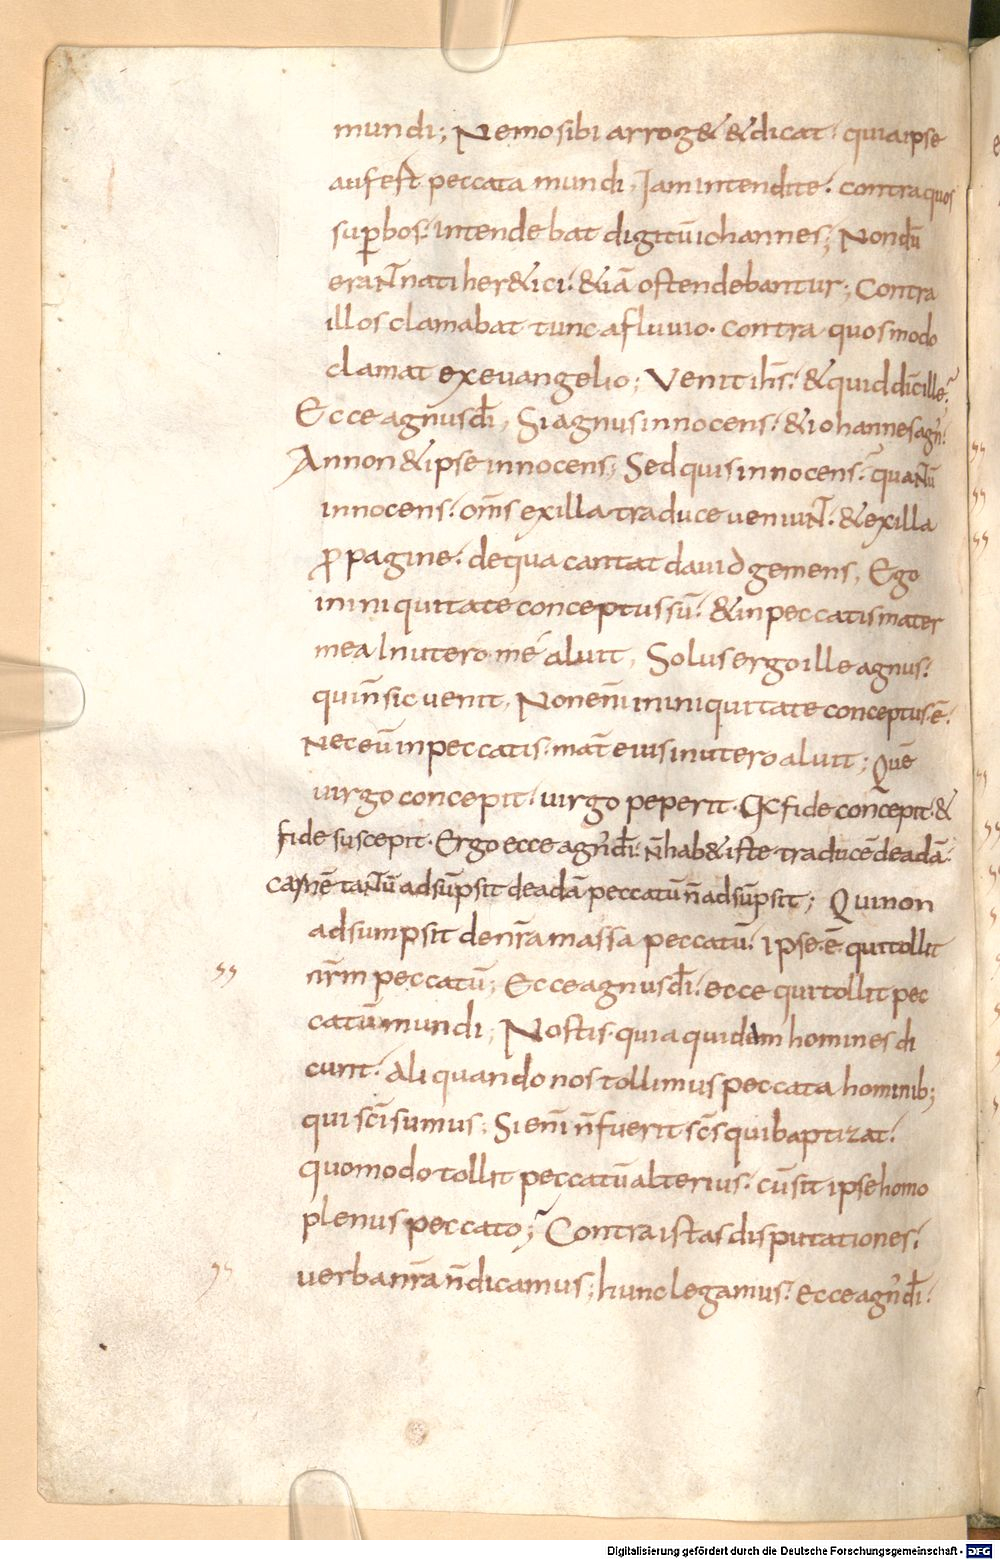 mundi; Nemo sibi arrog& & dicat· quia ipse
aufest peccata mundi, Iam intendite· contra quos
sup̱bos· intendebat digitū iohannes; Nondū
eraNT nati her&ici· & iā ostendebantur; Contra
illos clamabat tunc a fluuio· contra quos modo
clamat ex euangelio; Venit ih̄s· & quid dic̄ ille?
Ecce agnus dī, Si agnus innocens· & iohannes agn̄·
An non & ipse innocens; Sed quis innocens? quaNtū
innocens· om̄s ex illa traduce ueniuNT· & ex illa
ꝓpagine· de qua cantat dauid gemens, Ego
in iniquitate conceptus sū· & in peccatis mater
mea In utero me aluit, Solus ergo ille agnus·
qui n̄ sic uenit, Non eni̅ in iniquitate conceptus ē·
Nec eū in peccatis· mat̄ eius in utero aluit; Quē
uirgo concepit· uirgo peperit· Qa fide concepit· &
fide suscepit· Ergo ecce agn' dī· n̄ hab& iste traducē de adā·
carnē taNtū adsūpsit de adā peccatū n̄ adsūpsit; Qui non
adsumpsit de nr̄a massa peccatū· Ipse· ē· qui tollit
nr̄m peccatū; Ecce agnus dī· ecce qui tollit pec
catū mundi; Nostis· quia quidam homines di
cunt· Aliquando nos tollimus peccata hominib;
qui sc̄i sumus; Si eni̅ n̄ fuerit sc̄s qui baptizat·
quomodo tollit peccatū alterius· cū sit ipse homo
plenus peccato;? Contra istas disputationes·
uerba nr̄a n̄ dicamus; hunc legamus· ecce agn' dī·
Digitalisierung gefördert durch die Deutsche Forschungsgemeinschaft - DFG